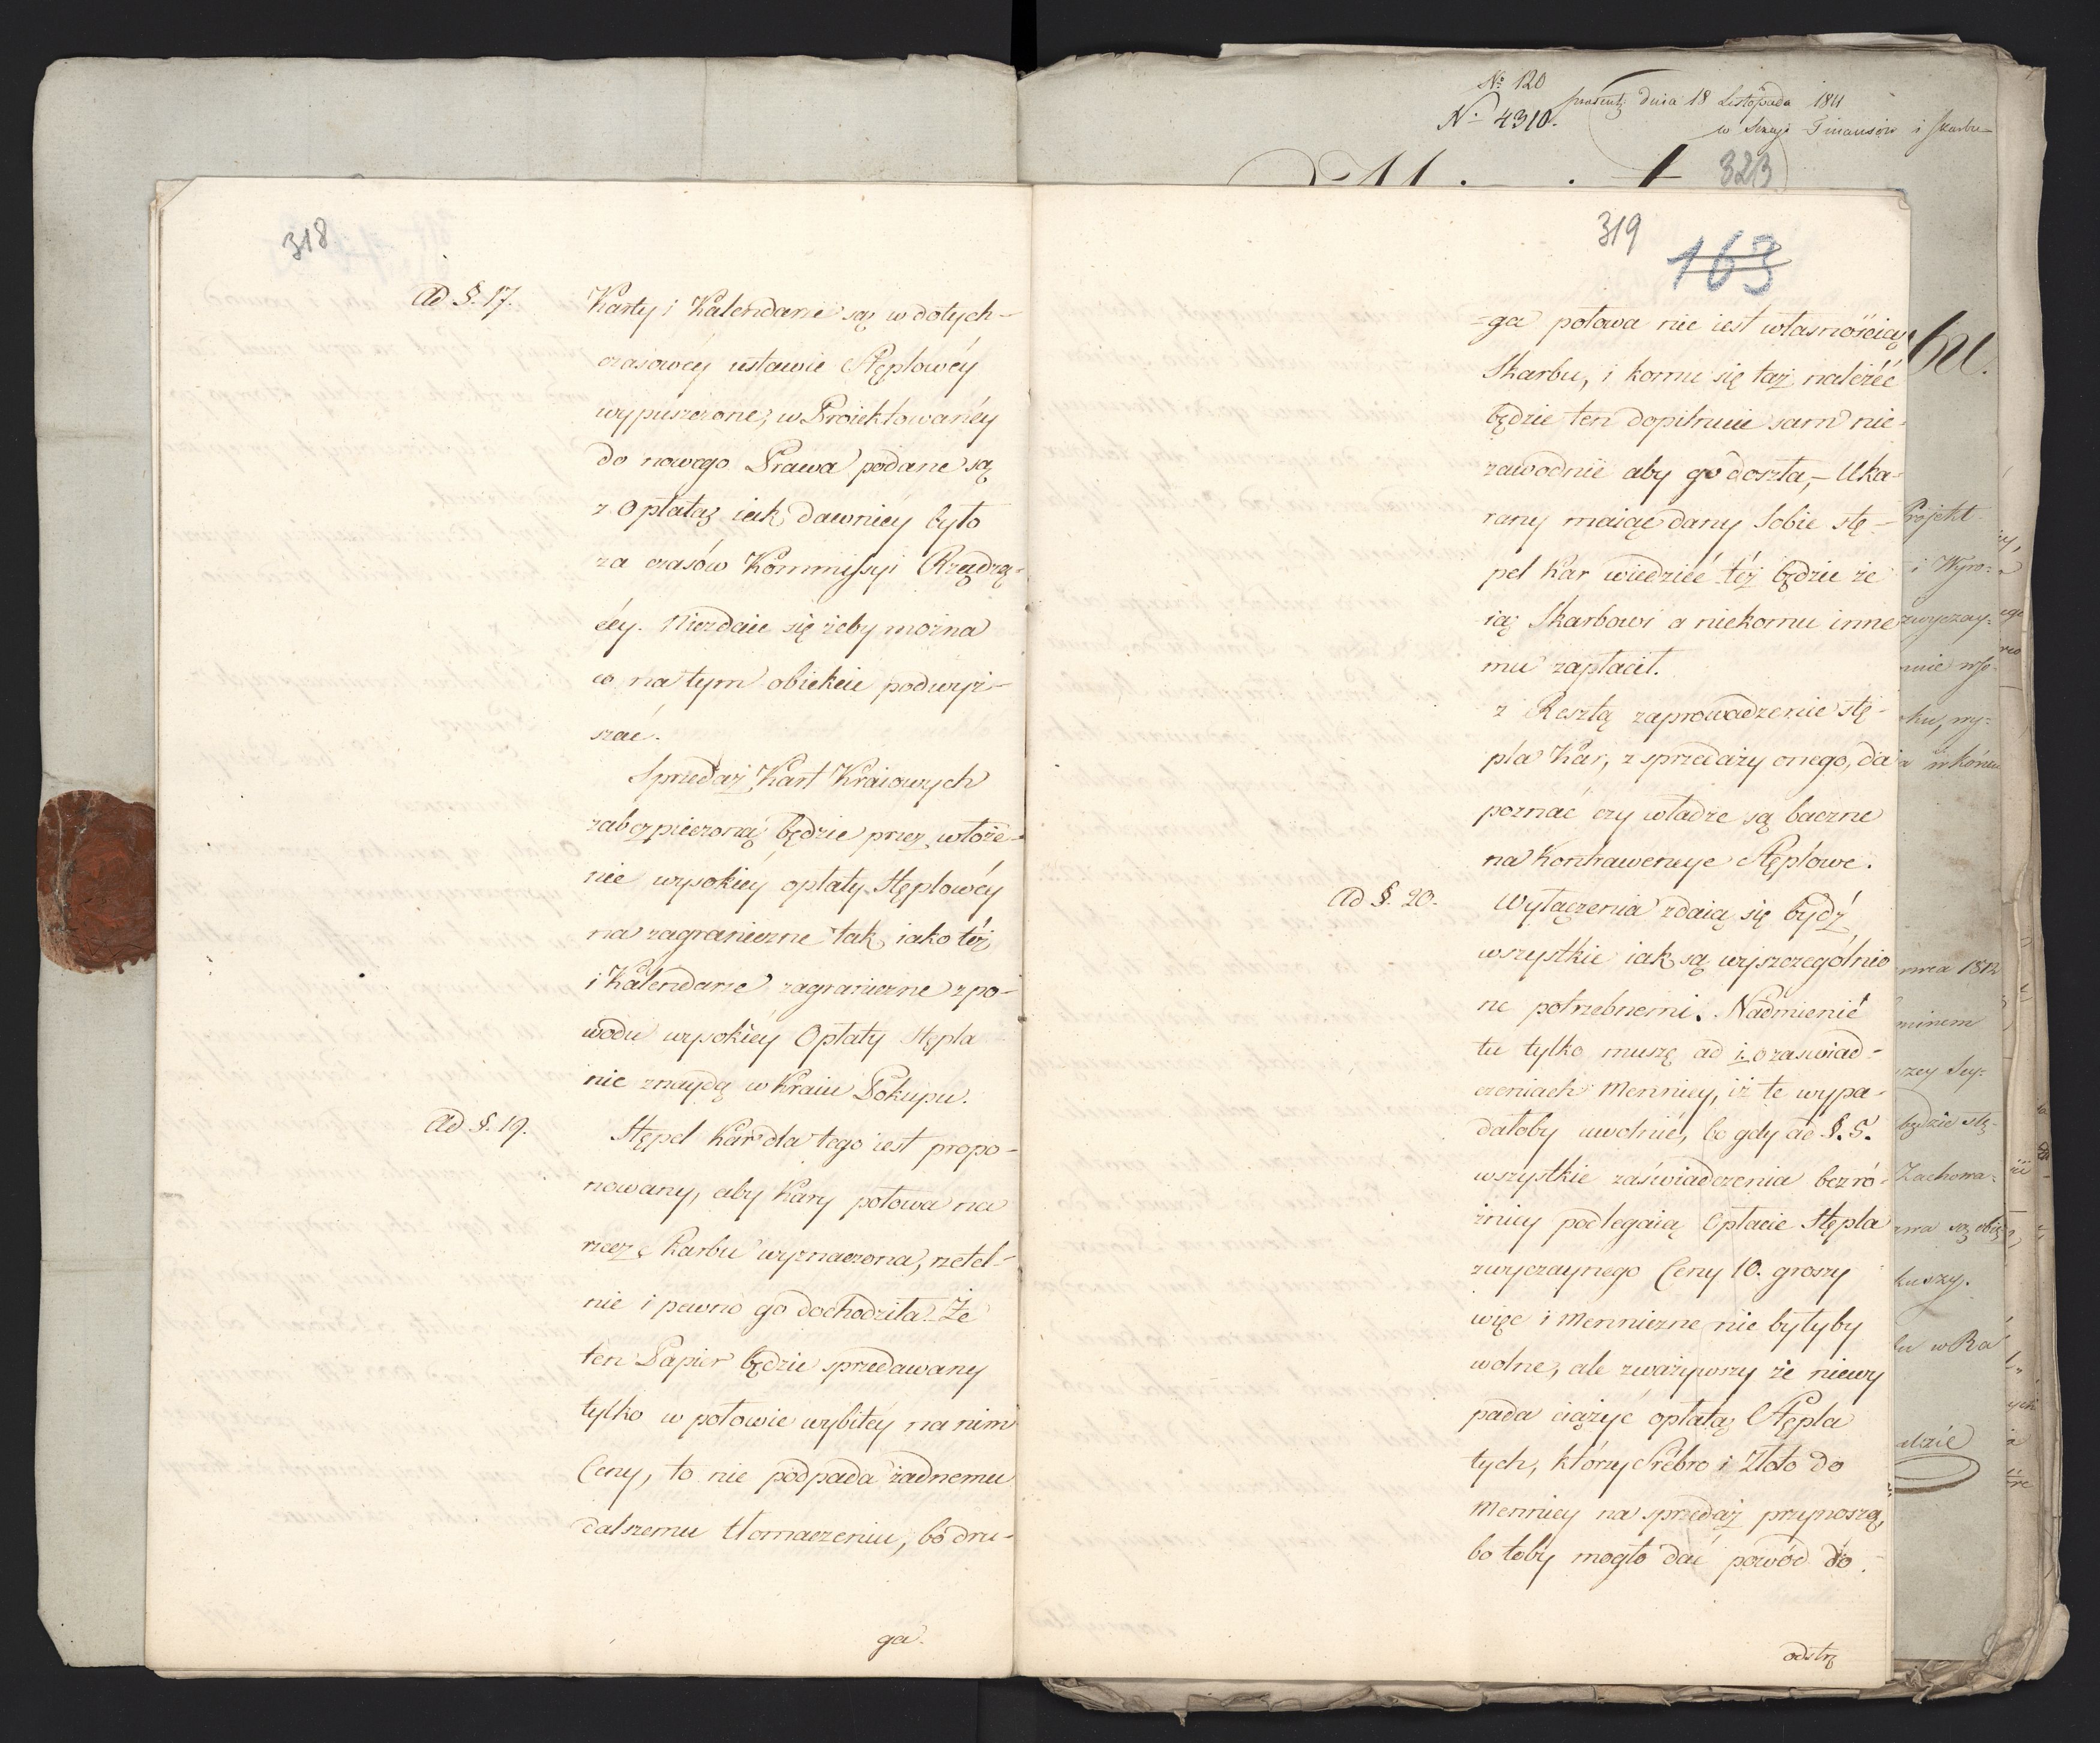 318
Ad §. 17.
Karty i Kalendarze są w dotych-
czasowéy ustawie Stęplowéy
wypuszczone; w Proiektowanéy
do nowego Prawa podane są
z Opłatą iak dawniey było
za czasów Kommissyi Rządzą-
céy. Niezdaie się żeby można
co na tym obiekcie podwyż-
szać.
Sprzedaż Kart Kraiowych
zabezpieczoną będzie przez włoże-
nie wysokiéy opłaty Stęplowéy
na zagraniczne tak iako też
i Kalendarze zagraniczne z po-
wodu wysokiéy Opłaty Stępla
nie znaydą w Kraiu Pokupu.
Ad §. 19.
Stępel Kar dla tego iest propo-
nowany, aby Kary połowa na
rzecz Skarbu wyznaczona, rzetel-
nie i pewno go dochodziła. Że
ten Papier będzie sprzedawany
tylko w połowie wybitéy na nim
Ceny, to nie podpada żadnemu
dalszemu tłomaczeniu, bo dru-
ga
No 120
N. 4310.
praesent dnia 18 Listopada 1811
w Sekcyi Finansów i Skarbu
323
319
163
-ga połowa nie iest własnością
Skarbu, i komu się taż należéć
będzie ten dopilnuie sam nie-
zawodnie aby go doszła, – Uka-
rany maiąc dany Sobie stę-
pel Kar wiedziéć téż będzie że
ią Skarbowi a niekomu inne
mu zapłacił.
z Resztą zaprowadzenie stę-
pla Kar, z sprzedaży onego, da
poznać czy władze są baczne
na Kontrawencye Stęplowe.
Ad §. 20.
Wyłączenia zdaią się bydź
wszystkie iak są wyszczególnio
ne potrzebnemi. Nadmienić
tu tylko muszę ad i. o zaswiad-
czeniach Mennicy, iż te wypa-
dałoby uwolnić, bo gdy ad §. 5.
wszystkie zaświadczenia bez ró-
żnicy podlegaią Opłacie Stępla
zwyczaynego Ceny 10. groszy
więc i Menniczne nie byłyby
wolne, ale zważywszy że niewy
pada ciążyć opłatą Stępla
tych, którzy Srébro i Złoto do
Mennicy na sprzedaż przynoszą,
bo toby mogło dać powód do
odstrę
bu.
Projekt
i Wyro-
zwyczay-
1812
będzie stę-
Zachowa-
kuszy.